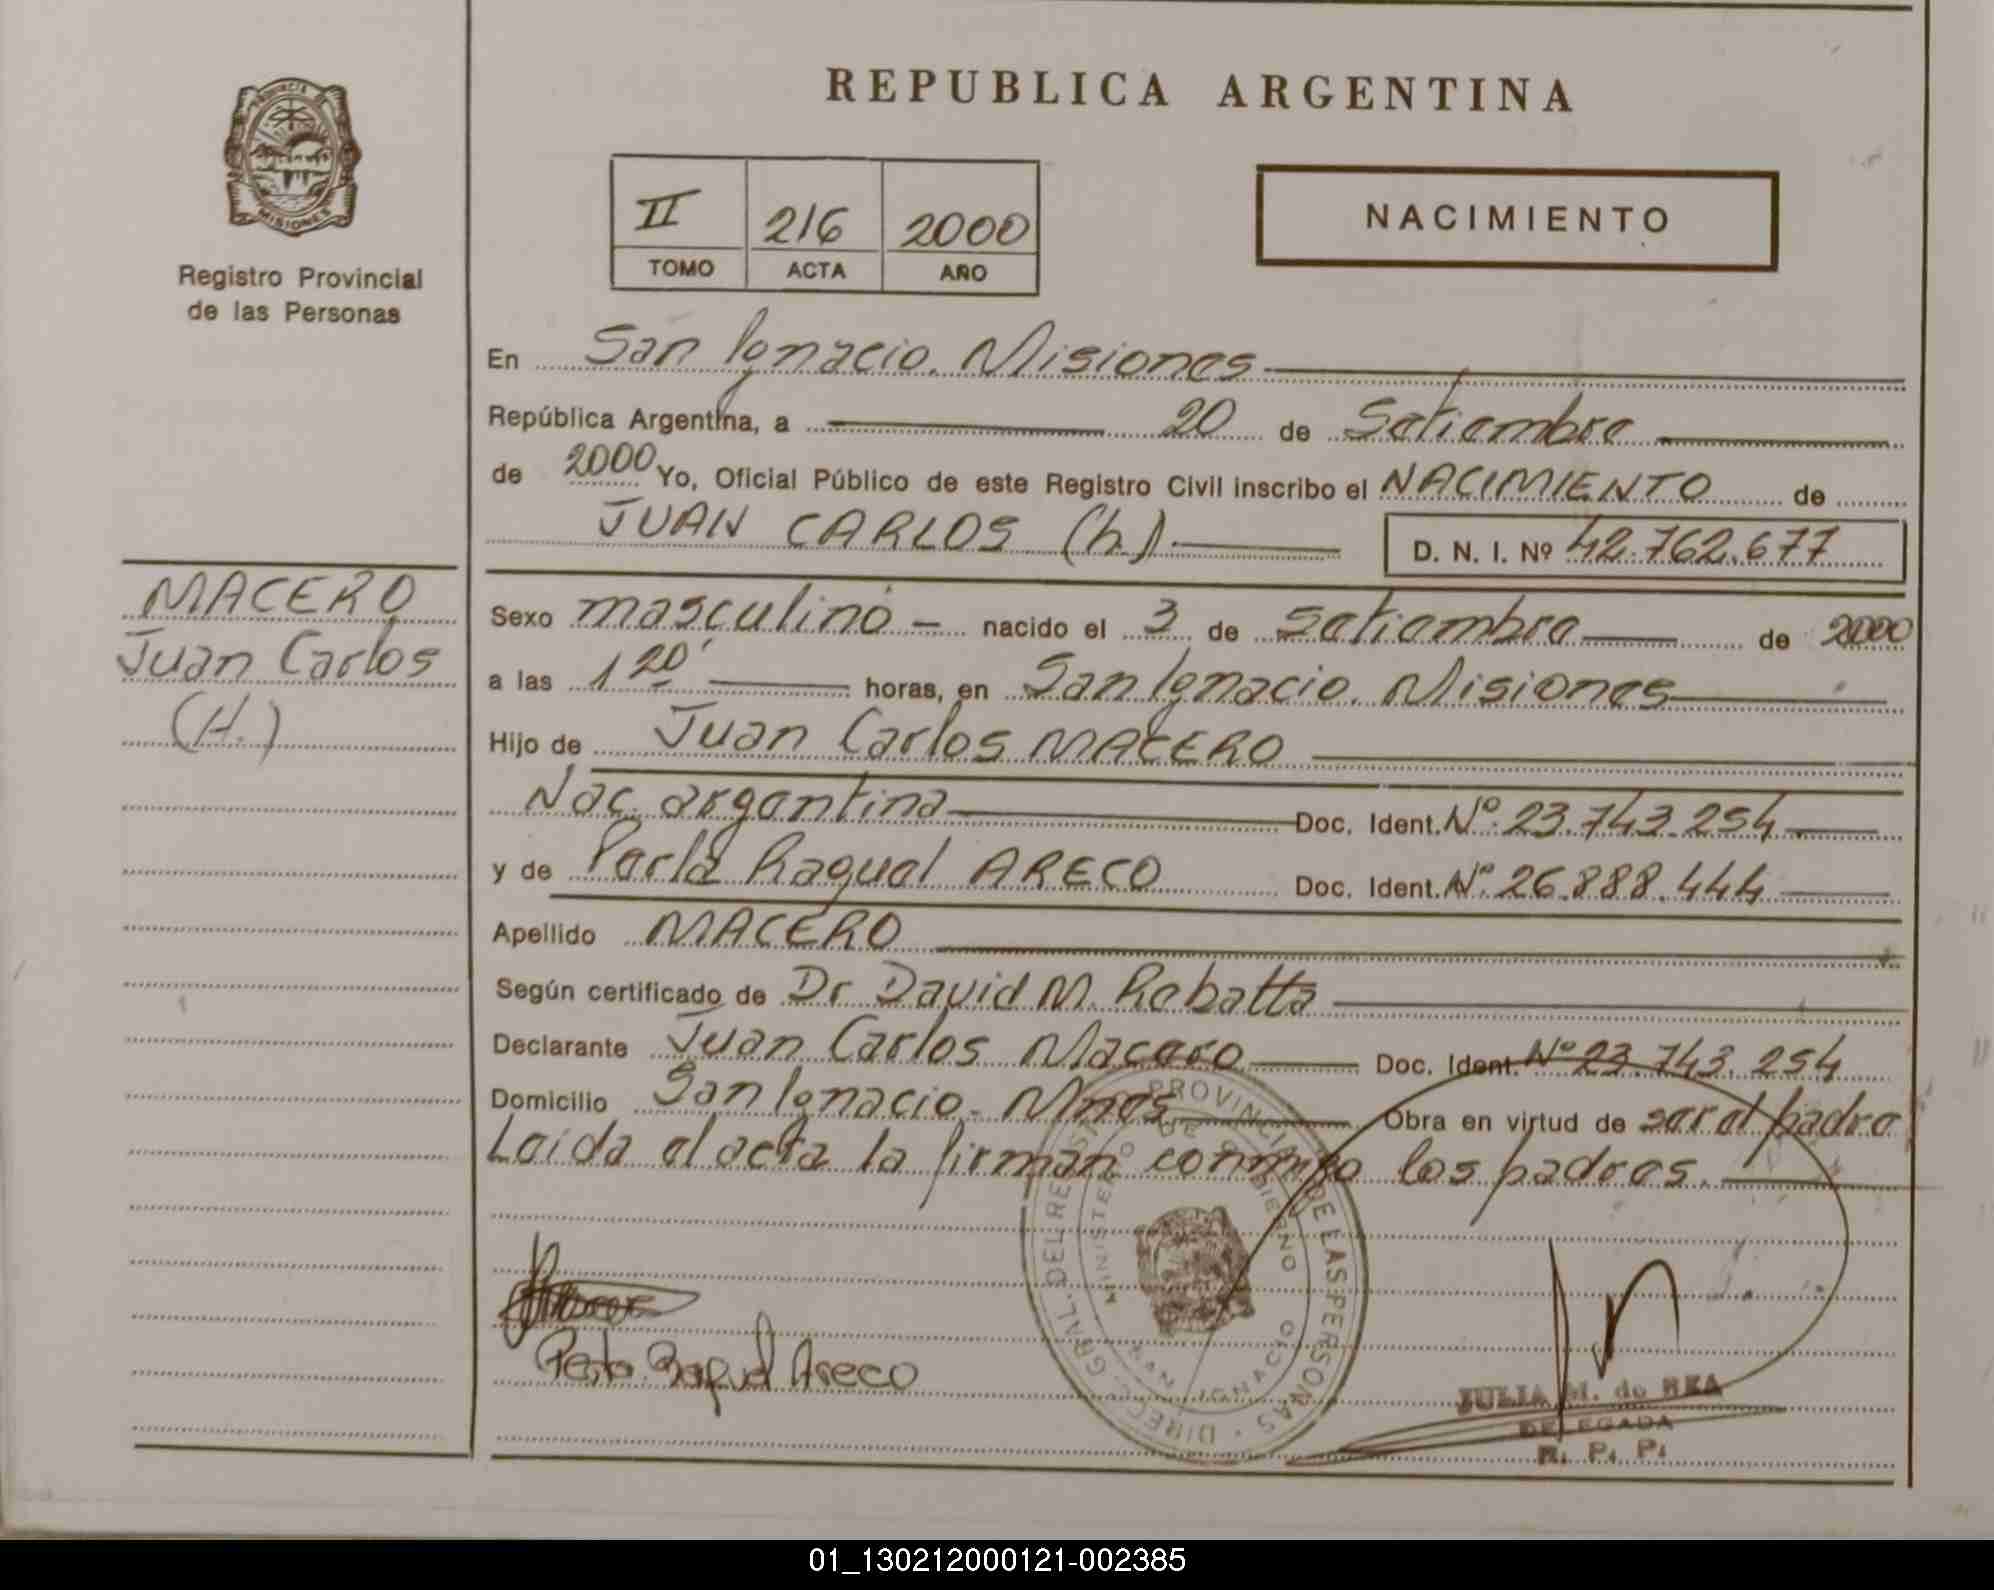 REPUBLICA ARGENTINA
PROVINCIA DE
MISIONES
Registro Provincial
de las Personas
II 216 2000
TOMO ACTA AÑO
NACIMIENTO
En San Ignacio. Misiones
República Argentina, a 20 de Setiembre
de 2000 Yo, Oficial Público de este Registro Civil inscribo el NACIMIENTO de
JUAN CARLOS (h.) D. N. I. Nº 42.762.677
MACERO
Juan Carlos
(H.)
Sexo masculino - nacido el 3 de Setiembre de 2000
a las 1 20' horas, en San Ignacio. Misiones
Hijo de Juan Carlos MACERO
Nac. argentina Doc. Ident. Nº. 23.743.254
y de Perla Raquel ARECO Doc. Ident. Nº. 26.888.444
Apellido MACERO
Según certificado de Dr David M. Rebatta
Declarante Juan Carlos Macero Doc. Ident. Nº 23.743.254
Domicilio San Ignacio. Mnes Obra en virtud de ser el padre
Leida el acta la firman conmigo los padres.
DIREC. GRAL. DEL REGIST. PROVINCIAL DE LAS PERSONAS
MINISTERIO DE GOBIERNO
SAN IGNACIO
Perla Raquel Areco
JULIA M. de REA
DELEGADA
R. P. P.
01_130212000121-002385